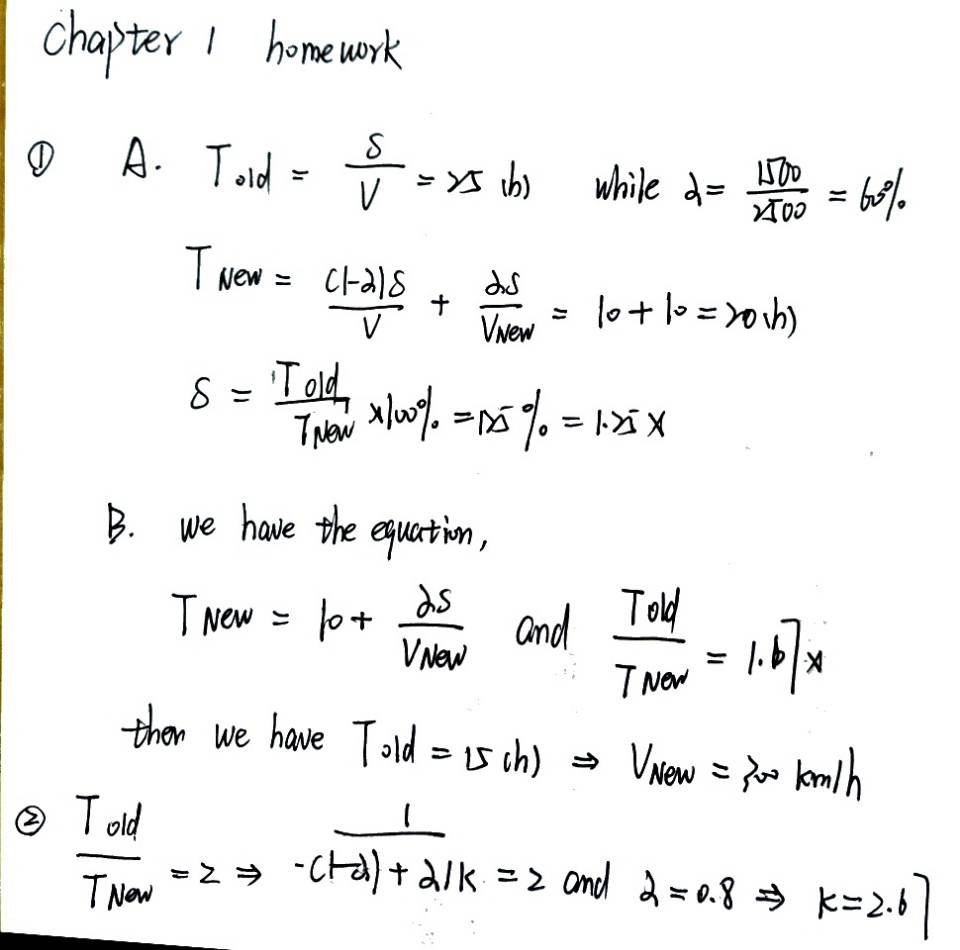 Chapter 1 homework
① A. T old = S/V = 25 (h) while α = 1500/2500 = 60%
T New = (1-α)S/V + αS/VNew = 10 + 10 = 20 (h)
S = Told/TNew ×100% = 125% = 1.25 ×
B. we have the equation,
T New = 10 + αS/VNew and Told/TNew = 1.67×
then we have Told = 15 (h) ⇒ VNew = 300 km/h
② Told/TNew = 2 ⇒ 1/-(1-α)+α/k = 2 and α = 0.8 ⇒ k = 2.67